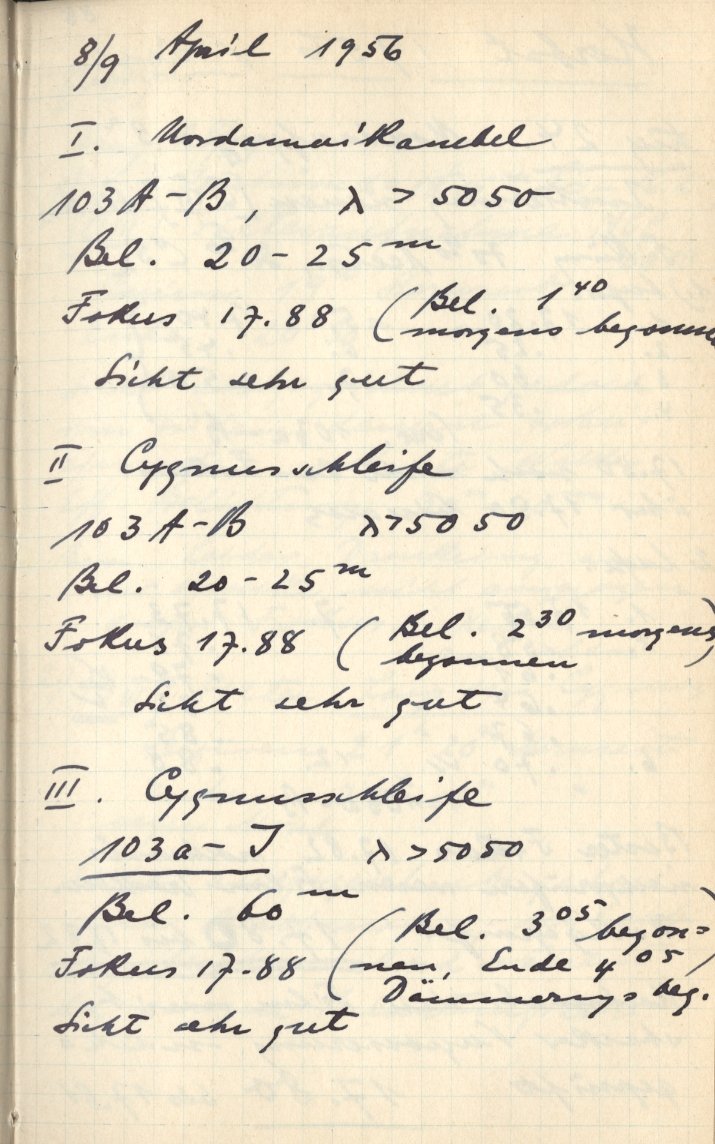 8/9 April 1956
I. Nordamerikanebel
103A-B, λ > 5050
Bel. 20-25 m
Fokus 17.88 (Bel. 1 40
morgens begonnen
Sicht sehr gut
II Cygnusschleife
103A-B λ > 5050
Bel. 20-25 m
Fokus 17.88 (Bel. 2 30 morgens
begonnen)
Sicht sehr gut
III. Cygnusschleife
103a-J λ > 5050
Bel. 60 m
(Bel. 3 05 begon=
Fokus 17.88 nen, Ende 4 05,
Dämmerungs beg.)
Sicht sehr gut